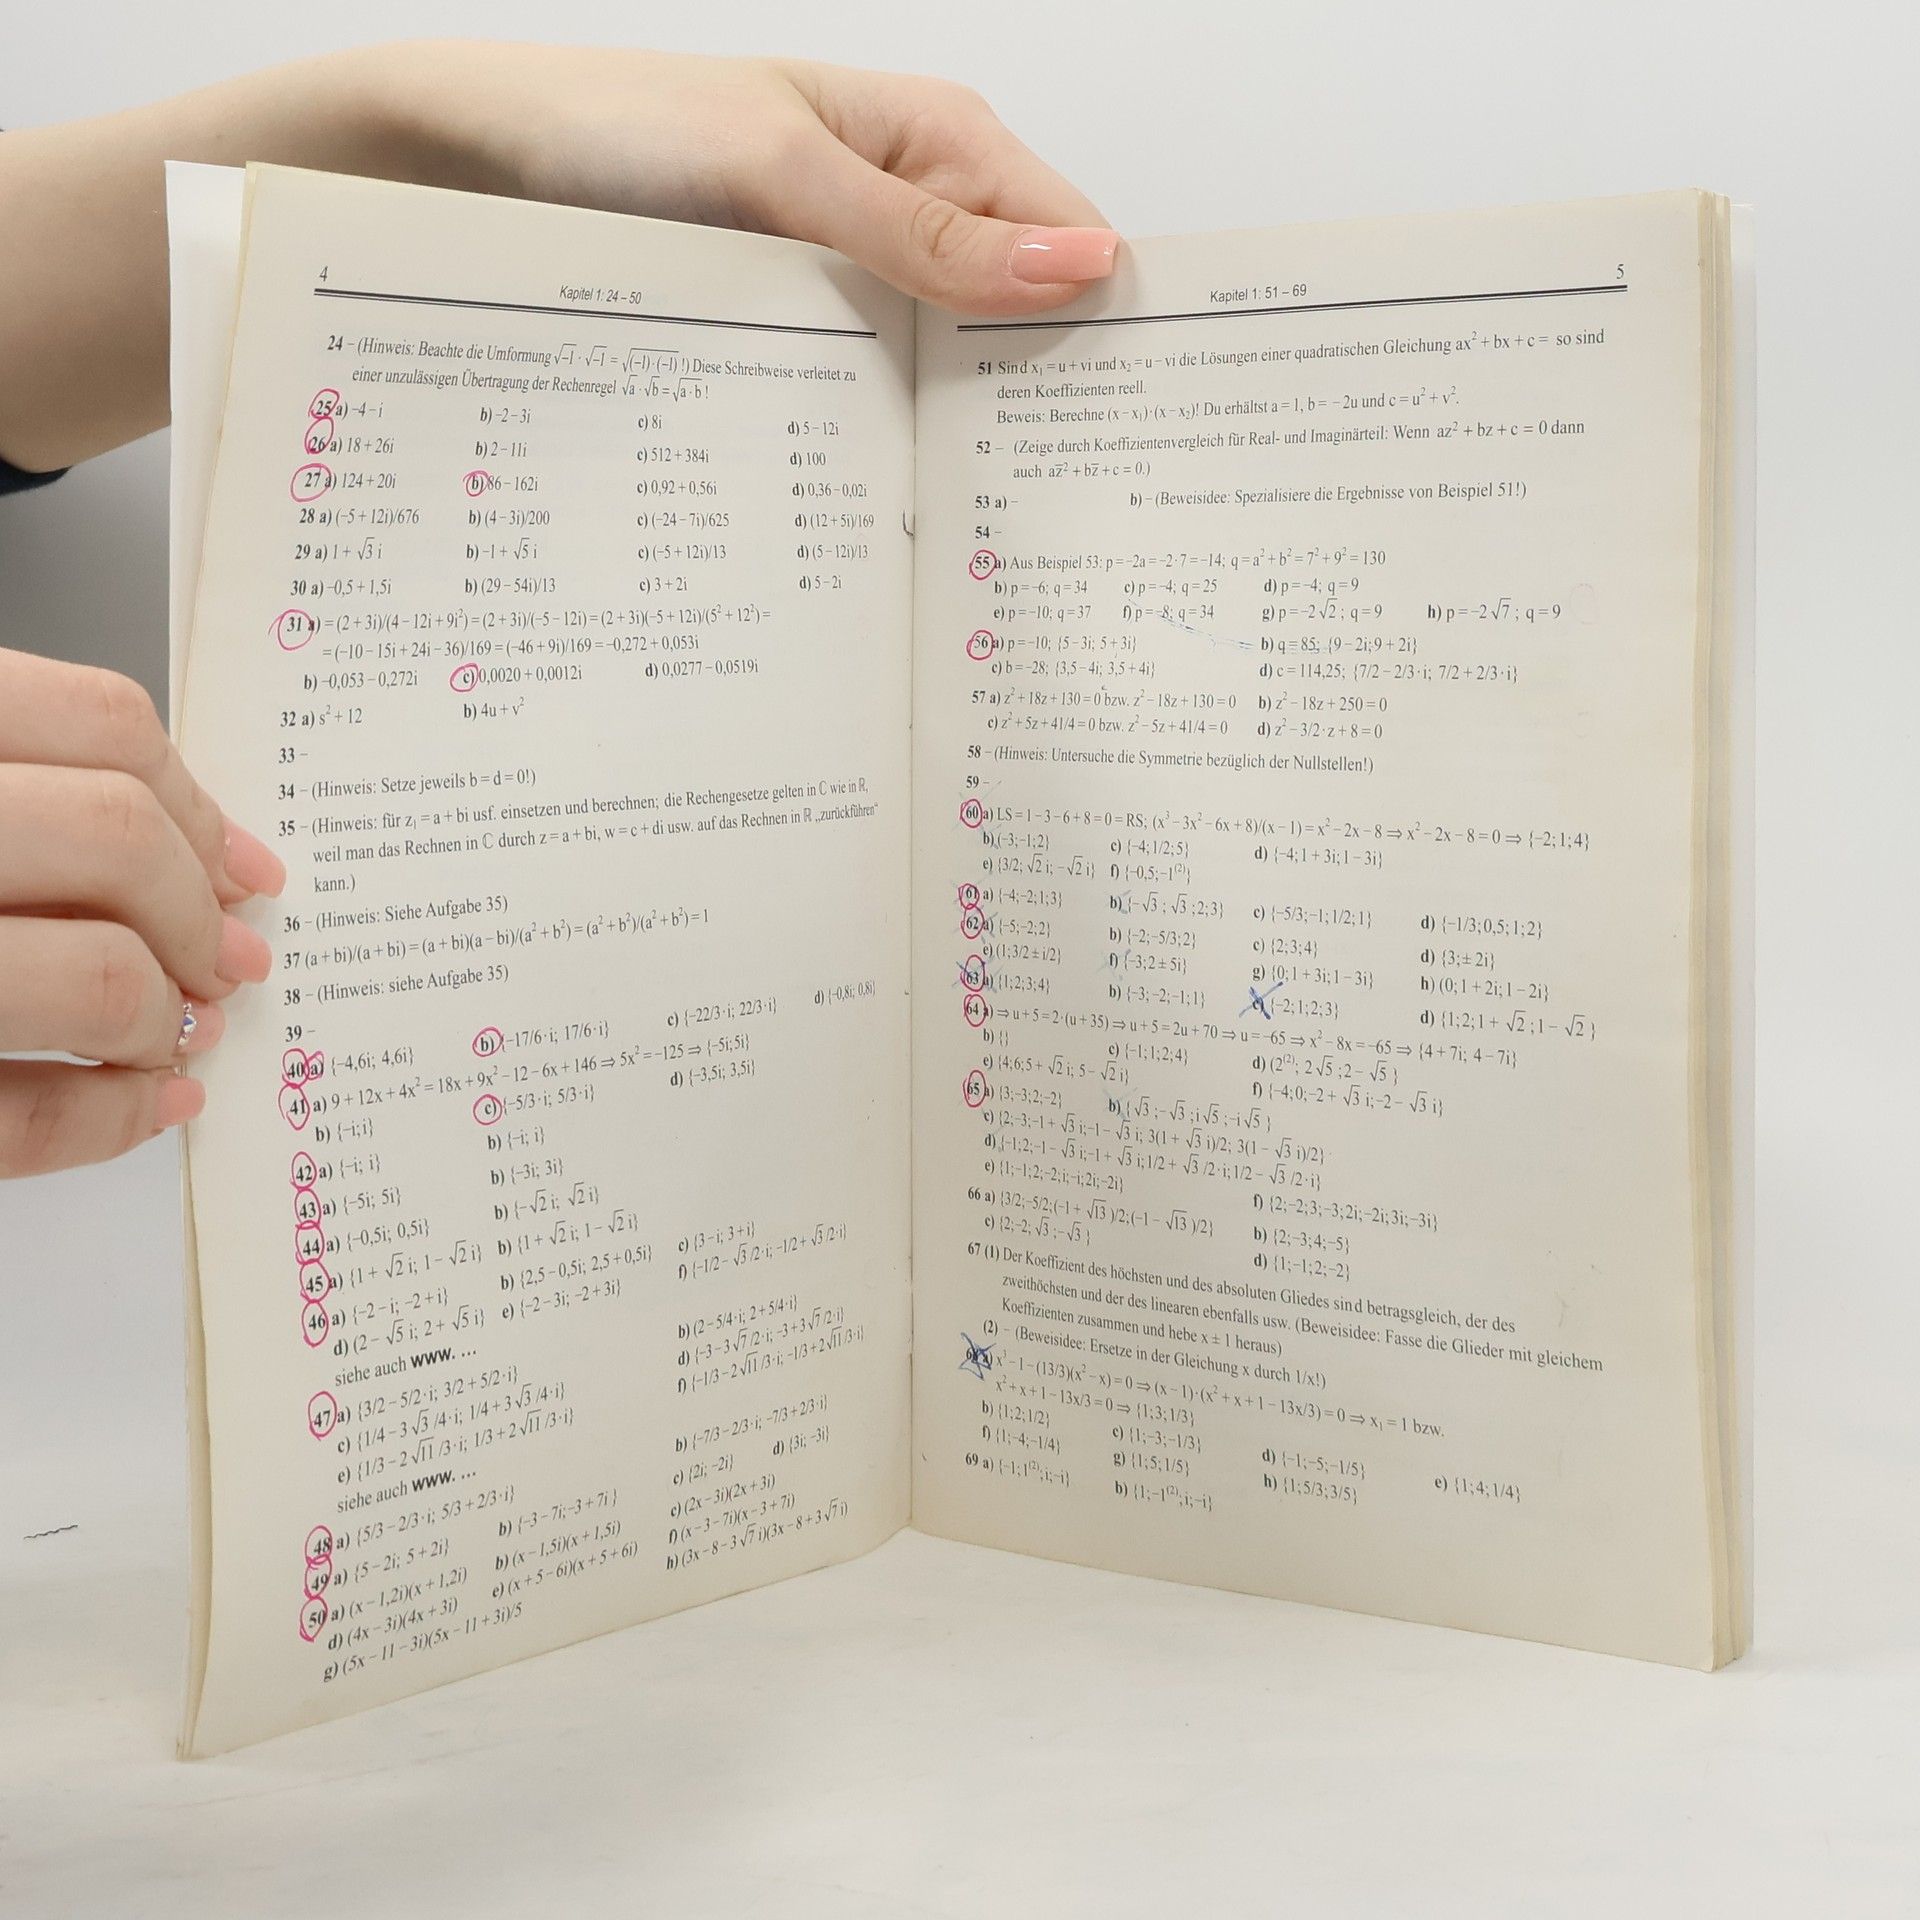 4
Kapitel 1: 24 – 50
24 – (Hinweis: Beachte die Umformung √–1 · √–1 = √(–1)·(–1) !) Diese Schreibweise verleitet zu
einer unzulässigen Übertragung der Rechenregel √a · √b = √a·b !
25 a) –4 – i b) –2 – 3i c) 8i d) 5 – 12i
26 a) 18 + 26i b) 2 – 11i c) 512 + 384i d) 100
27 a) 124 + 20i b) 86 – 162i c) 0,92 + 0,56i d) 0,36 – 0,02i
28 a) (–5 + 12i)/676 b) (4 – 3i)/200 c) (–24 – 7i)/625 d) (12 + 5i)/169
29 a) 1 + √3 i b) –1 + √5 i c) (–5 + 12i)/13 d) (5 – 12i)/13
30 a) –0,5 + 1,5i b) (29 – 54i)/13 c) 3 + 2i d) 5 – 2i
31 a) = (2 + 3i)/(4 – 12i + 9i²) = (2 + 3i)/(–5 – 12i) = (2 + 3i)(–5 + 12i)/(5² + 12²) =
= (–10 – 15i + 24i – 36)/169 = (–46 + 9i)/169 = –0,272 + 0,053i
b) –0,053 – 0,272i c) 0,0020 + 0,0012i d) 0,0277 – 0,0519i
32 a) s² + 12 b) 4u + v²
33 –
34 – (Hinweis: Setze jeweils b = d = 0!)
35 – (Hinweis: für z₁ = a + bi usf. einsetzen und berechnen; die Rechengesetze gelten in ℂ wie in ℝ,
weil man das Rechnen in ℂ durch z = a + bi, w = c + di usw. auf das Rechnen in ℝ „zurückführen“
kann.)
36 – (Hinweis: Siehe Aufgabe 35)
37 (a + bi)/(a + bi) = (a + bi)(a – bi)/(a² + b²) = (a² + b²)/(a² + b²) = 1
38 – (Hinweis: siehe Aufgabe 35)
39 –
40 a) {–4,6i; 4,6i} b) {–17/6·i; 17/6·i} c) {–22/3·i; 22/3·i} d) {–0,8i; 0,8i}
41 a) 9 + 12x + 4x² = 18x + 9x² – 12 – 6x + 146 ⇒ 5x² = –125 ⇒ {–5i; 5i}
b) {–i;i} c) {–5/3·i; 5/3·i} d) {–3,5i; 3,5i}
42 a) {–i; i} b) {–i; i}
43 a) {–5i; 5i} b) {–3i; 3i}
44 a) {–0,5i; 0,5i} b) {–√2 i; √2 i}
45 a) {1 + √2 i; 1 – √2 i} b) {1 + √2 i; 1 – √2 i}
46 a) {–2 – i; –2 + i} b) {2,5 – 0,5i; 2,5 + 0,5i} c) {3 – i; 3 + i}
d) (2 – √5 i; 2 + √5 i} e) {–2 – 3i; –2 + 3i} f) {–1/2 – √3/2·i; –1/2 + √3/2·i}
siehe auch www. ...
47 a) {3/2 – 5/2·i; 3/2 + 5/2·i} b) (2 – 5/4·i; 2 + 5/4·i}
c) {1/4 – 3√3/4·i; 1/4 + 3√3/4·i} d) {–3 – 3√7/2·i; –3 + 3√7/2·i}
e) {1/3 – 2√11/3·i; 1/3 + 2√11/3·i} f) {–1/3 – 2√11/3·i; –1/3 + 2√11/3·i}
siehe auch www. ...
48 a) {5/3 – 2/3·i; 5/3 + 2/3·i} b) {–7/3 – 2/3·i; –7/3 + 2/3·i}
49 a) {5 – 2i; 5 + 2i} b) {–3 – 7i; –3 + 7i} c) {2i; –2i} d) {3i; –3i}
50 a) (x – 1,2i)(x + 1,2i) b) (x – 1,5i)(x + 1,5i) c) (2x – 3i)(2x + 3i)
d) (4x – 3i)(4x + 3i) e) (x + 5 – 6i)(x + 5 + 6i) f) (x – 3 – 7i)(x – 3 + 7i)
g) (5x – 11 – 3i)(5x – 11 + 3i)/5 h) (3x – 8 – 3√7 i)(3x – 8 + 3√7 i)
5
Kapitel 1: 51 – 69
51 Sind x₁ = u + vi und x₂ = u – vi die Lösungen einer quadratischen Gleichung ax² + bx + c = so sind
deren Koeffizienten reell.
Beweis: Berechne (x – x₁)·(x – x₂)! Du erhältst a = 1, b = – 2u und c = u² + v².
52 – (Zeige durch Koeffizientenvergleich für Real- und Imaginärteil: Wenn az² + bz + c = 0 dann
auch az̅² + bz̅ + c = 0.)
53 a) – b) – (Beweisidee: Spezialisiere die Ergebnisse von Beispiel 51!)
54 –
55 a) Aus Beispiel 53: p = –2a = –2·7 = –14; q = a² + b² = 7² + 9² = 130
b) p = –6; q = 34 c) p = –4; q = 25 d) p = –4; q = 9
e) p = –10; q = 37 f) p = –8; q = 34 g) p = –2√2 ; q = 9 h) p = –2√7 ; q = 9
56 a) p = –10; {5 – 3i; 5 + 3i} b) q = 85; {9 – 2i;9 + 2i}
c) b = –28; {3,5 – 4i; 3,5 + 4i} d) c = 114,25; {7/2 – 2/3·i; 7/2 + 2/3·i}
57 a) z² + 18z + 130 = 0 bzw. z² – 18z + 130 = 0 b) z² – 18z + 250 = 0
c) z² + 5z + 41/4 = 0 bzw. z² – 5z + 41/4 = 0 d) z² – 3/2·z + 8 = 0
58 – (Hinweis: Untersuche die Symmetrie bezüglich der Nullstellen!)
59 –
60 a) LS = 1 – 3 – 6 + 8 = 0 = RS; (x³ – 3x² – 6x + 8)/(x – 1) = x² – 2x – 8 ⇒ x² – 2x – 8 = 0 ⇒ {–2; 1; 4}
b) (–3; –1; 2} c) {–4; 1/2; 5} d) {–4; 1 + 3i; 1 – 3i}
e) {3/2; √2 i; –√2 i} f) {–0,5; –1⁽²⁾}
61 a) {–4; –2; 1; 3} b) {–√3 ; √3 ; 2; 3} c) {–5/3; –1; 1/2; 1} d) {–1/3; 0,5; 1; 2}
62 a) {–5; –2; 2} b) {–2; –5/3; 2} c) {2; 3; 4} d) {3; ± 2i}
e) (1; 3/2 ± i/2} f) {–3; 2 ± 5i} g) {0; 1 + 3i; 1 – 3i} h) (0; 1 + 2i; 1 – 2i}
63 a) {1; 2; 3; 4} b) {–3; –2; –1; 1} c) {–2; 1; 2; 3} d) {1; 2; 1 + √2 ; 1 – √2 }
64 a) ⇒ u + 5 = 2·(u + 35) ⇒ u + 5 = 2u + 70 ⇒ u = –65 ⇒ x² – 8x = –65 ⇒ {4 + 7i; 4 – 7i}
b) {} c) {–1; 1; 2; 4} d) (2⁽²⁾; 2√5 ; 2 – √5 }
e) {4; 6; 5 + √2 i; 5 – √2 i} f) {–4; 0; –2 + √3 i; –2 – √3 i}
65 a) {3; –3; 2; –2} b) {√3 ; –√3 ; i√5 ; –i√5 }
c) {2; –3; –1 + √3 i; –1 – √3 i; 3(1 + √3 i)/2; 3(1 – √3 i)/2}
d) {–1; 2; –1 – √3 i; –1 + √3 i; 1/2 + √3/2·i; 1/2 – √3/2·i}
e) {1; –1; 2; –2; i; –i; 2i; –2i} f) {2; –2; 3; –3; 2i; –2i; 3i; –3i}
66 a) {3/2; –5/2; (–1 + √13 )/2; (–1 – √13 )/2} b) {2; –3; 4; –5}
c) {2; –2; √3 ; –√3 } d) {1; –1; 2; –2}
67 (1) Der Koeffizient des höchsten und des absoluten Gliedes sind betragsgleich, der des
zweithöchsten und der des linearen ebenfalls usw. (Beweisidee: Fasse die Glieder mit gleichem
Koeffizienten zusammen und hebe x ± 1 heraus)
(2) – (Beweisidee: Ersetze in der Gleichung x durch 1/x!)
68 a) x³ – 1 – (13/3)(x² – x) = 0 ⇒ (x – 1)·(x² + x + 1 – 13x/3) = 0 ⇒ x₁ = 1 bzw.
x² + x + 1 – 13x/3 = 0 ⇒ {1; 3; 1/3}
b) {1; 2; 1/2} c) {1; –3; –1/3} d) {–1; –5; –1/5} e) {1; 4; 1/4}
f) {1; –4; –1/4} g) {1; 5; 1/5} h) {1; 5/3; 3/5}
69 a) {–1; 1⁽²⁾; i; –i} b) {1; –1⁽²⁾; i; –i}